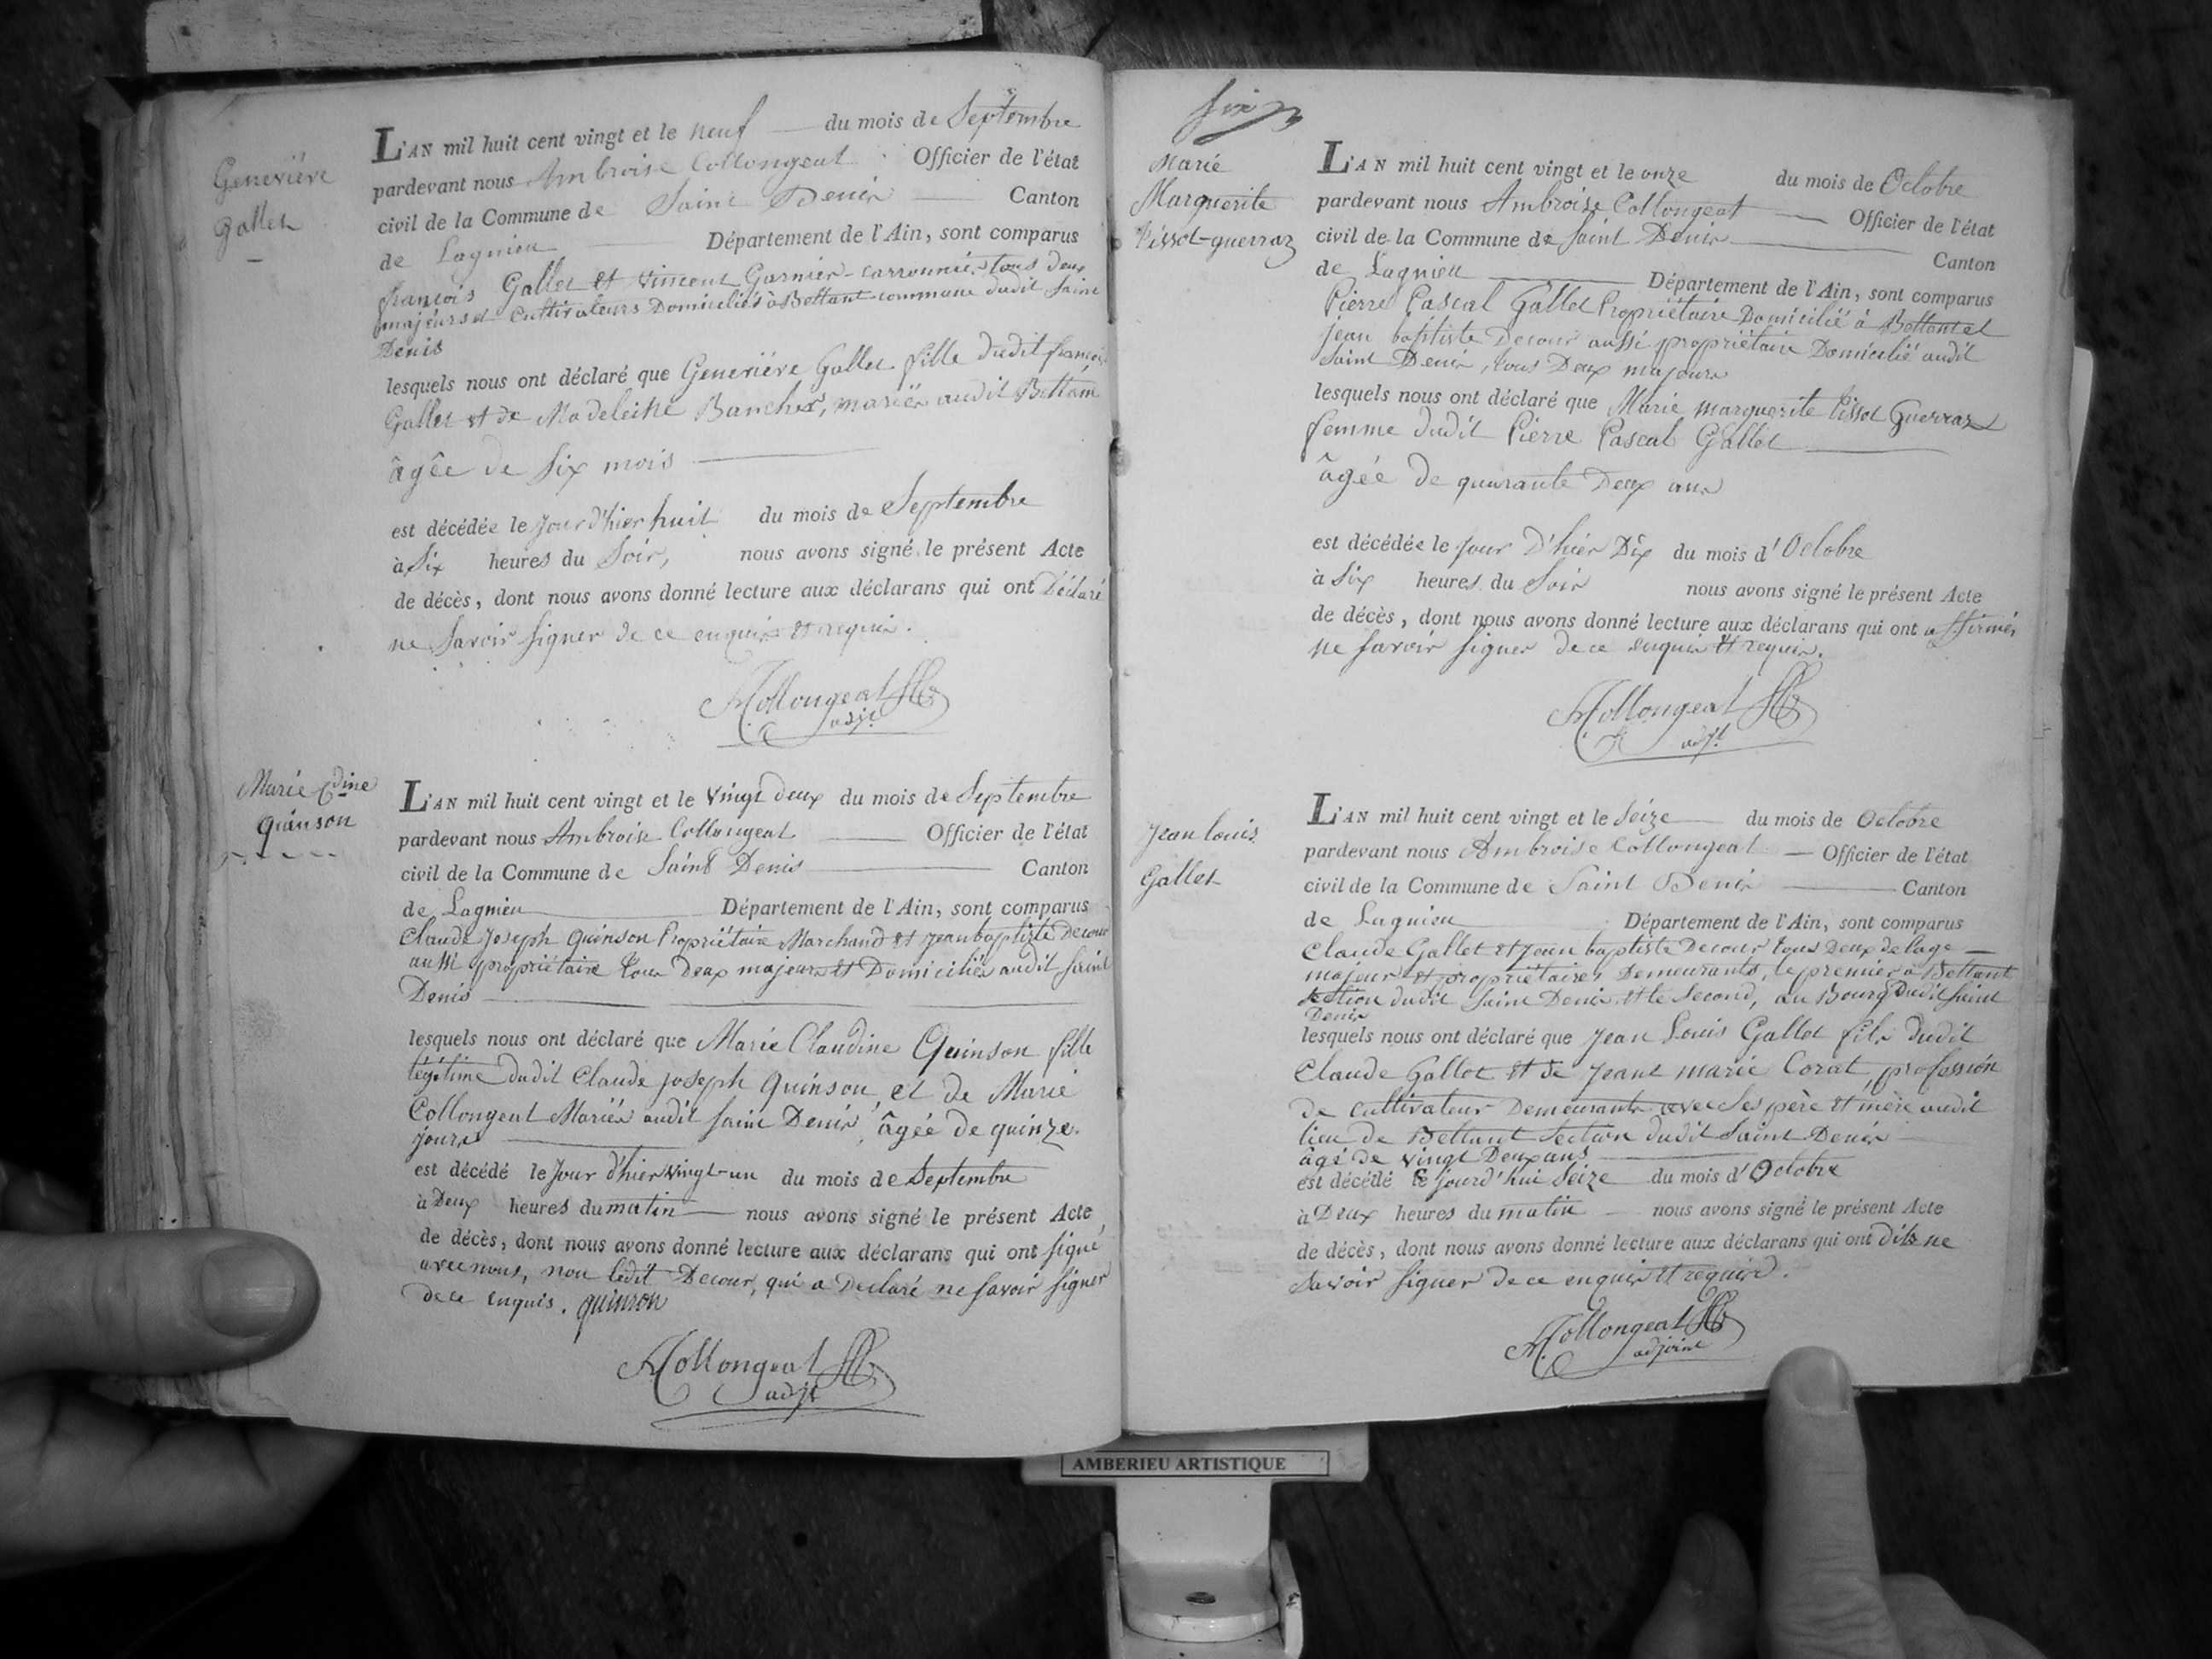 Geneviève
Gallet
L'AN mil huit cent vingt et le neuf du mois de Septembre
pardevant nous Ambroise Collongeat Officier de l'état
civil de la Commune de Saint Denis Canton
de Lagnieu Département de l'Ain, sont comparus
françois Gallet et Vincent Garnier-carronnier, tous deux
majeurs et Cultivateurs Domiciliés à Bettant commune dudit Saint
Denis
lesquels nous ont déclaré que Geneviève Gallet fille dudit françois
Gallet et de Madeleine Banchet, mariés audit Bettant
âgée de six mois
est décédée le jour d'hier huit du mois de Septembre
à Six heures du Soir, nous avons signé le présent Acte
de décès, dont nous avons donné lecture aux déclarans qui ont Déclaré
ne Savoir signer de ce enquis et requis.
A. Collongeat
adjt
Marie Cdine
Quinson
L'AN mil huit cent vingt et le vingt deux du mois de Septembre
pardevant nous Ambroise Collongeat Officier de l'état
civil de la Commune de Saint Denis Canton
de Lagnieu Département de l'Ain, sont comparus
Claude Joseph Quinson Propriétaire Marchand et Jean baptiste Decour
aussi propriétaire tous Deux majeurs et Domiciliés audit Saint
Denis
lesquels nous ont déclaré que Marie Claudine Quinson fille
légitime dudit Claude joseph Quinson, et de Marie
Collongeat Mariés audit Saint Denis, âgée de quinze
jours
est décédé le Jour d'hier vingt-un du mois de Septembre
à Deux heures du matin nous avons signé le présent Acte
de décès, dont nous avons donné lecture aux déclarans qui ont signé
avec nous, non ledit Decour, qui a Declaré ne Savoir signer
de ce enquis. quinson
A. Collongeat
adjt
six
Marie
Marguerite
Tissot-guerraz
L'AN mil huit cent vingt et le onze du mois de Octobre
pardevant nous Ambroise Collongeat Officier de l'état
civil de la Commune de Saint Denis Canton
de Lagnieu Département de l'Ain, sont comparus
Pierre Pascal Gallet Propriétaire Domicilié à Bettant et
jean baptiste Decour aussi propriétaire Domicilié audit
Saint Denis, tous Deux majeurs
lesquels nous ont déclaré que Marie marguerite Tissot Guerraz
femme dudit Pierre Pascal Gallet
âgée de quarante Deux ans
est décédée le jour D'hier Dix du mois d'Octobre
à Six heures du Soir nous avons signé le présent Acte
de décès, dont nous avons donné lecture aux déclarans qui ont affirmés
ne savoir signer de ce enquis et requis.
A. Collongeat
adjt
Jean Louis
Gallet
L'AN mil huit cent vingt et le Seize du mois de Octobre
pardevant nous Ambroise Collongeat Officier de l'état
civil de la Commune de Saint Denis Canton
de Lagnieu Département de l'Ain, sont comparus
Claude Gallet et Jean baptiste Decour tous Deux de l'age
majeur et propriétaires Demeurants, le premier à Bettant
Section dudit Saint Denis et le Second, au Bourg Dudit Saint
Denis
lesquels nous ont déclaré que Jean Louis Gallet fils dudit
Claude Gallet et de Jeane marie Corat, profession
de cultivateur Demeurants avec Ses père et mère audit
lieu de Bettant Section dudit Saint Denis
âgé de vingt Deux ans
est décédé le jourd'hui Seize du mois d'Octobre
à Deux heures du matin nous avons signé le présent Acte
de décès, dont nous avons donné lecture aux déclarans qui ont dits ne
Savoir signer de ce enquis et requis.
A. Collongeat
adjoint
AMBERIEU ARTISTIQUE